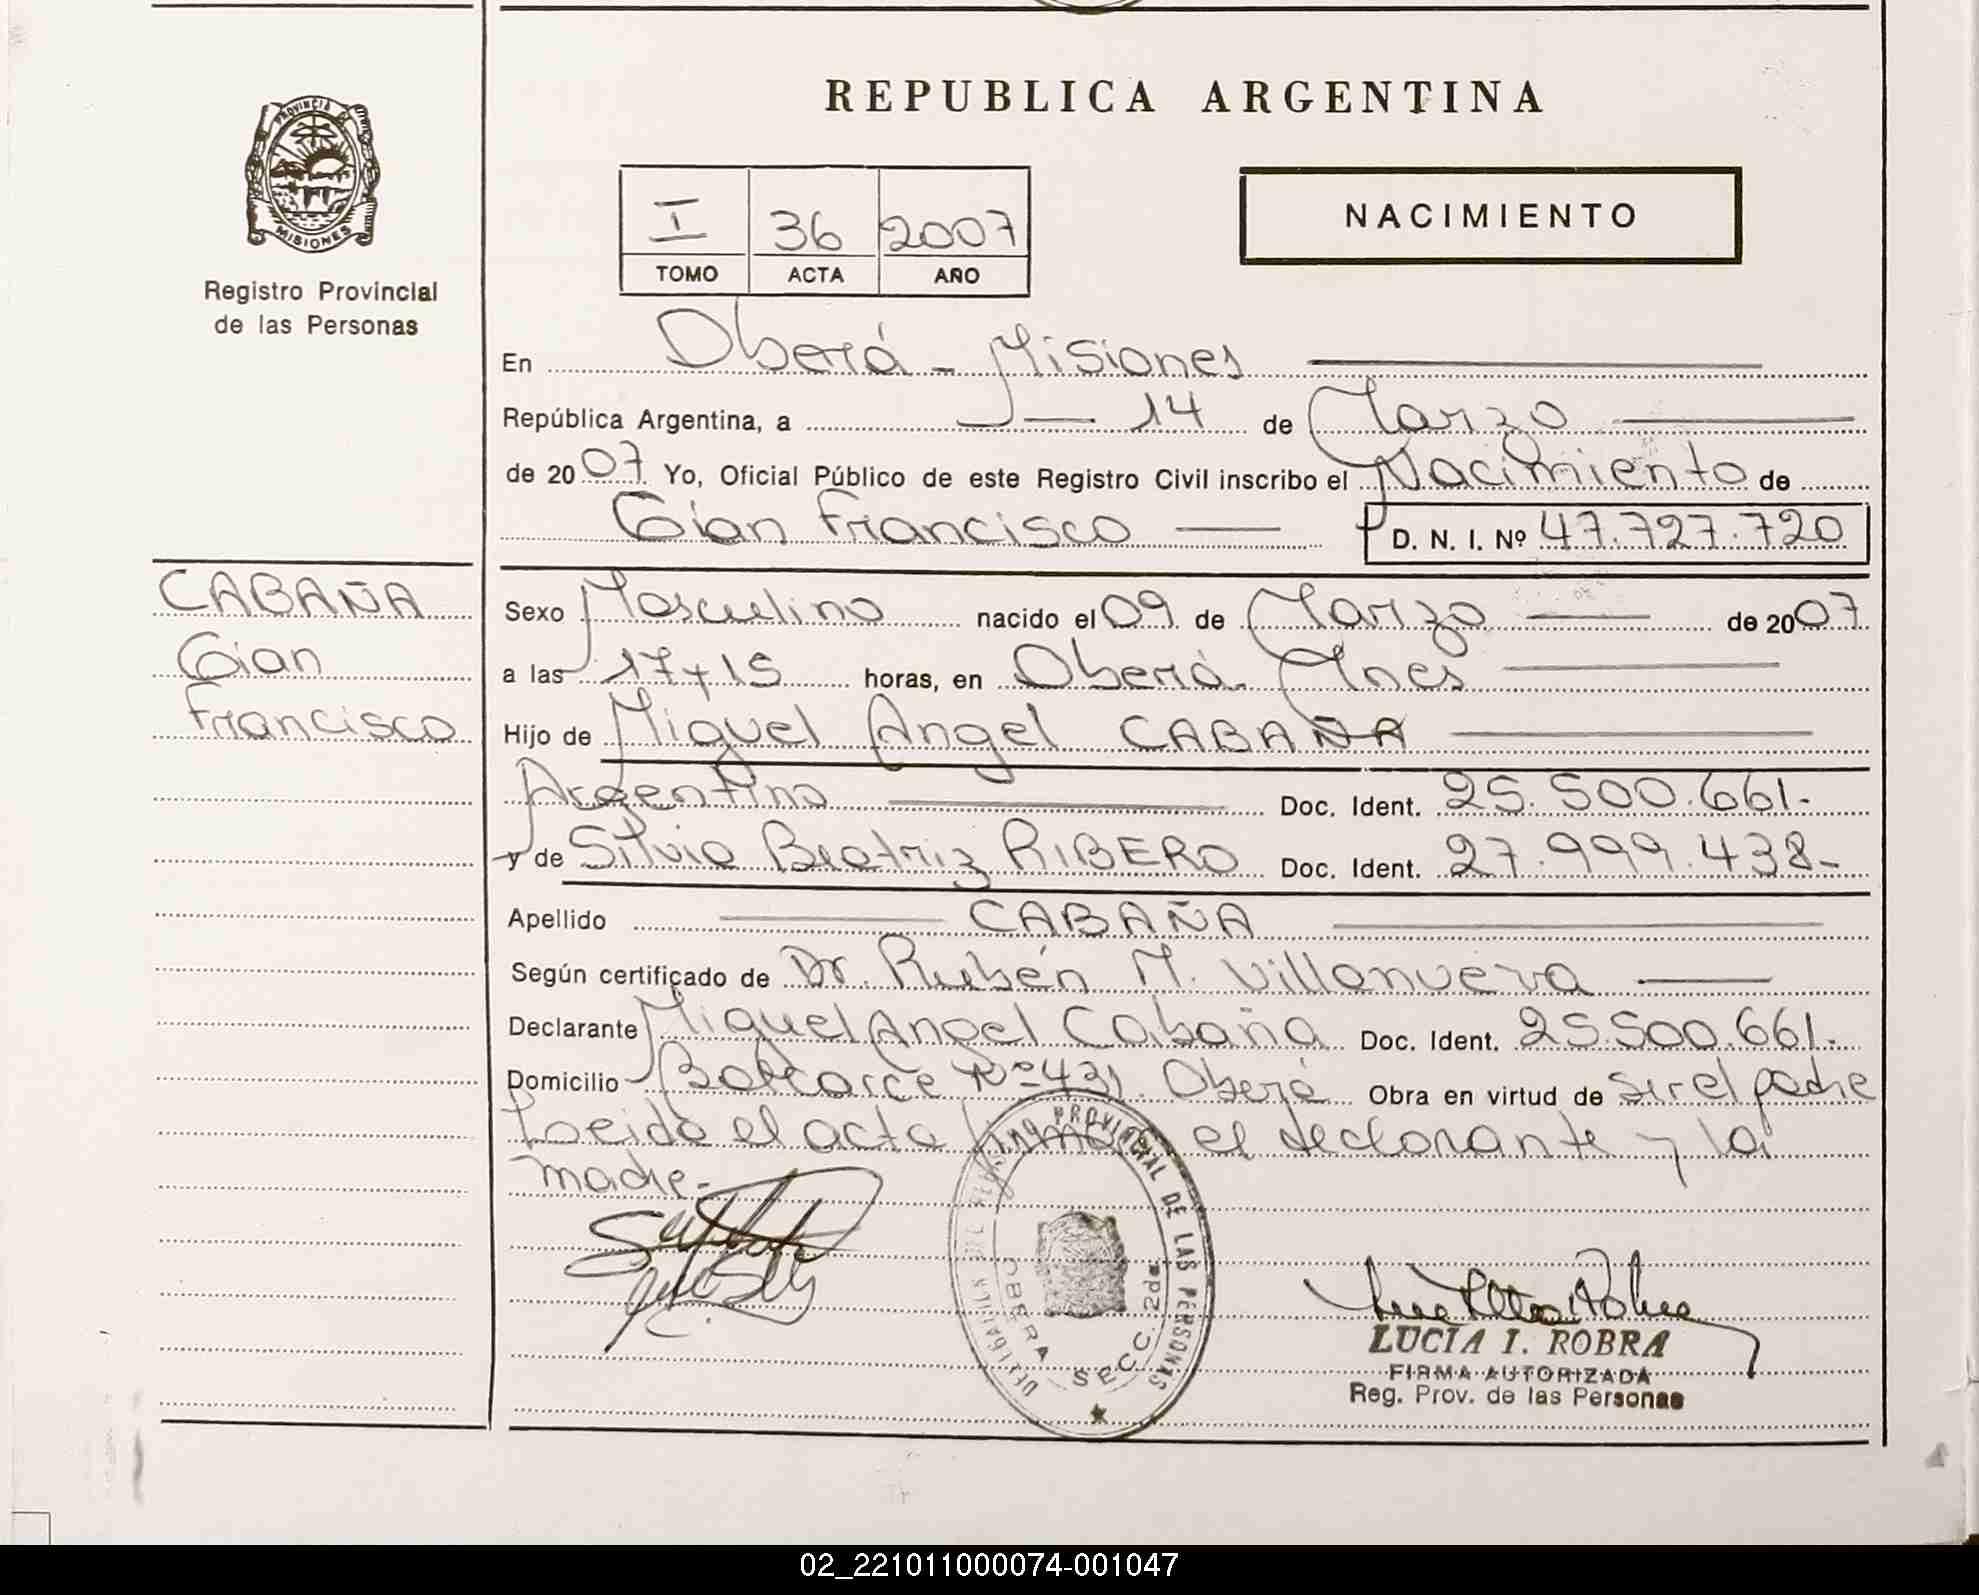 REPUBLICA ARGENTINA
PROVINCIA DE
MISIONES
Registro Provincial
de las Personas
I 36 2007
TOMO ACTA AÑO
NACIMIENTO
En Oberá - Misiones
República Argentina, a 14 de Marzo
de 2007 Yo, Oficial Público de este Registro Civil inscribo el Nacimiento de
Gian Francisco D. N. I. Nº 47.727.720
CABAÑA
Gian
Francisco
Sexo Masculino nacido el 09 de Marzo de 2007
a las 17 y 15 horas, en Oberá Mnes
Hijo de Miguel Angel CABAÑA
Argentino Doc. Ident. 25.500.661.-
y de Silvia Beatriz RIBERO Doc. Ident. 27.999.438-
Apellido CABAÑA
Según certificado de Dr. Rubén M. Villanueva
Declarante Miguel Angel Cabaña Doc. Ident. 25.500.661.-
Domicilio Balcarce Nº 431 Oberá Obra en virtud de ser el padre
Leida el acta firma el declarante y la
madre.-
DELEGACION DEL REGISTRO PROVINCIAL DE LAS PERSONAS
OBERA SECC. 2da
LUCIA I. ROBRA
FIRMA AUTORIZADA
Reg. Prov. de las Personas
02_221011000074-001047